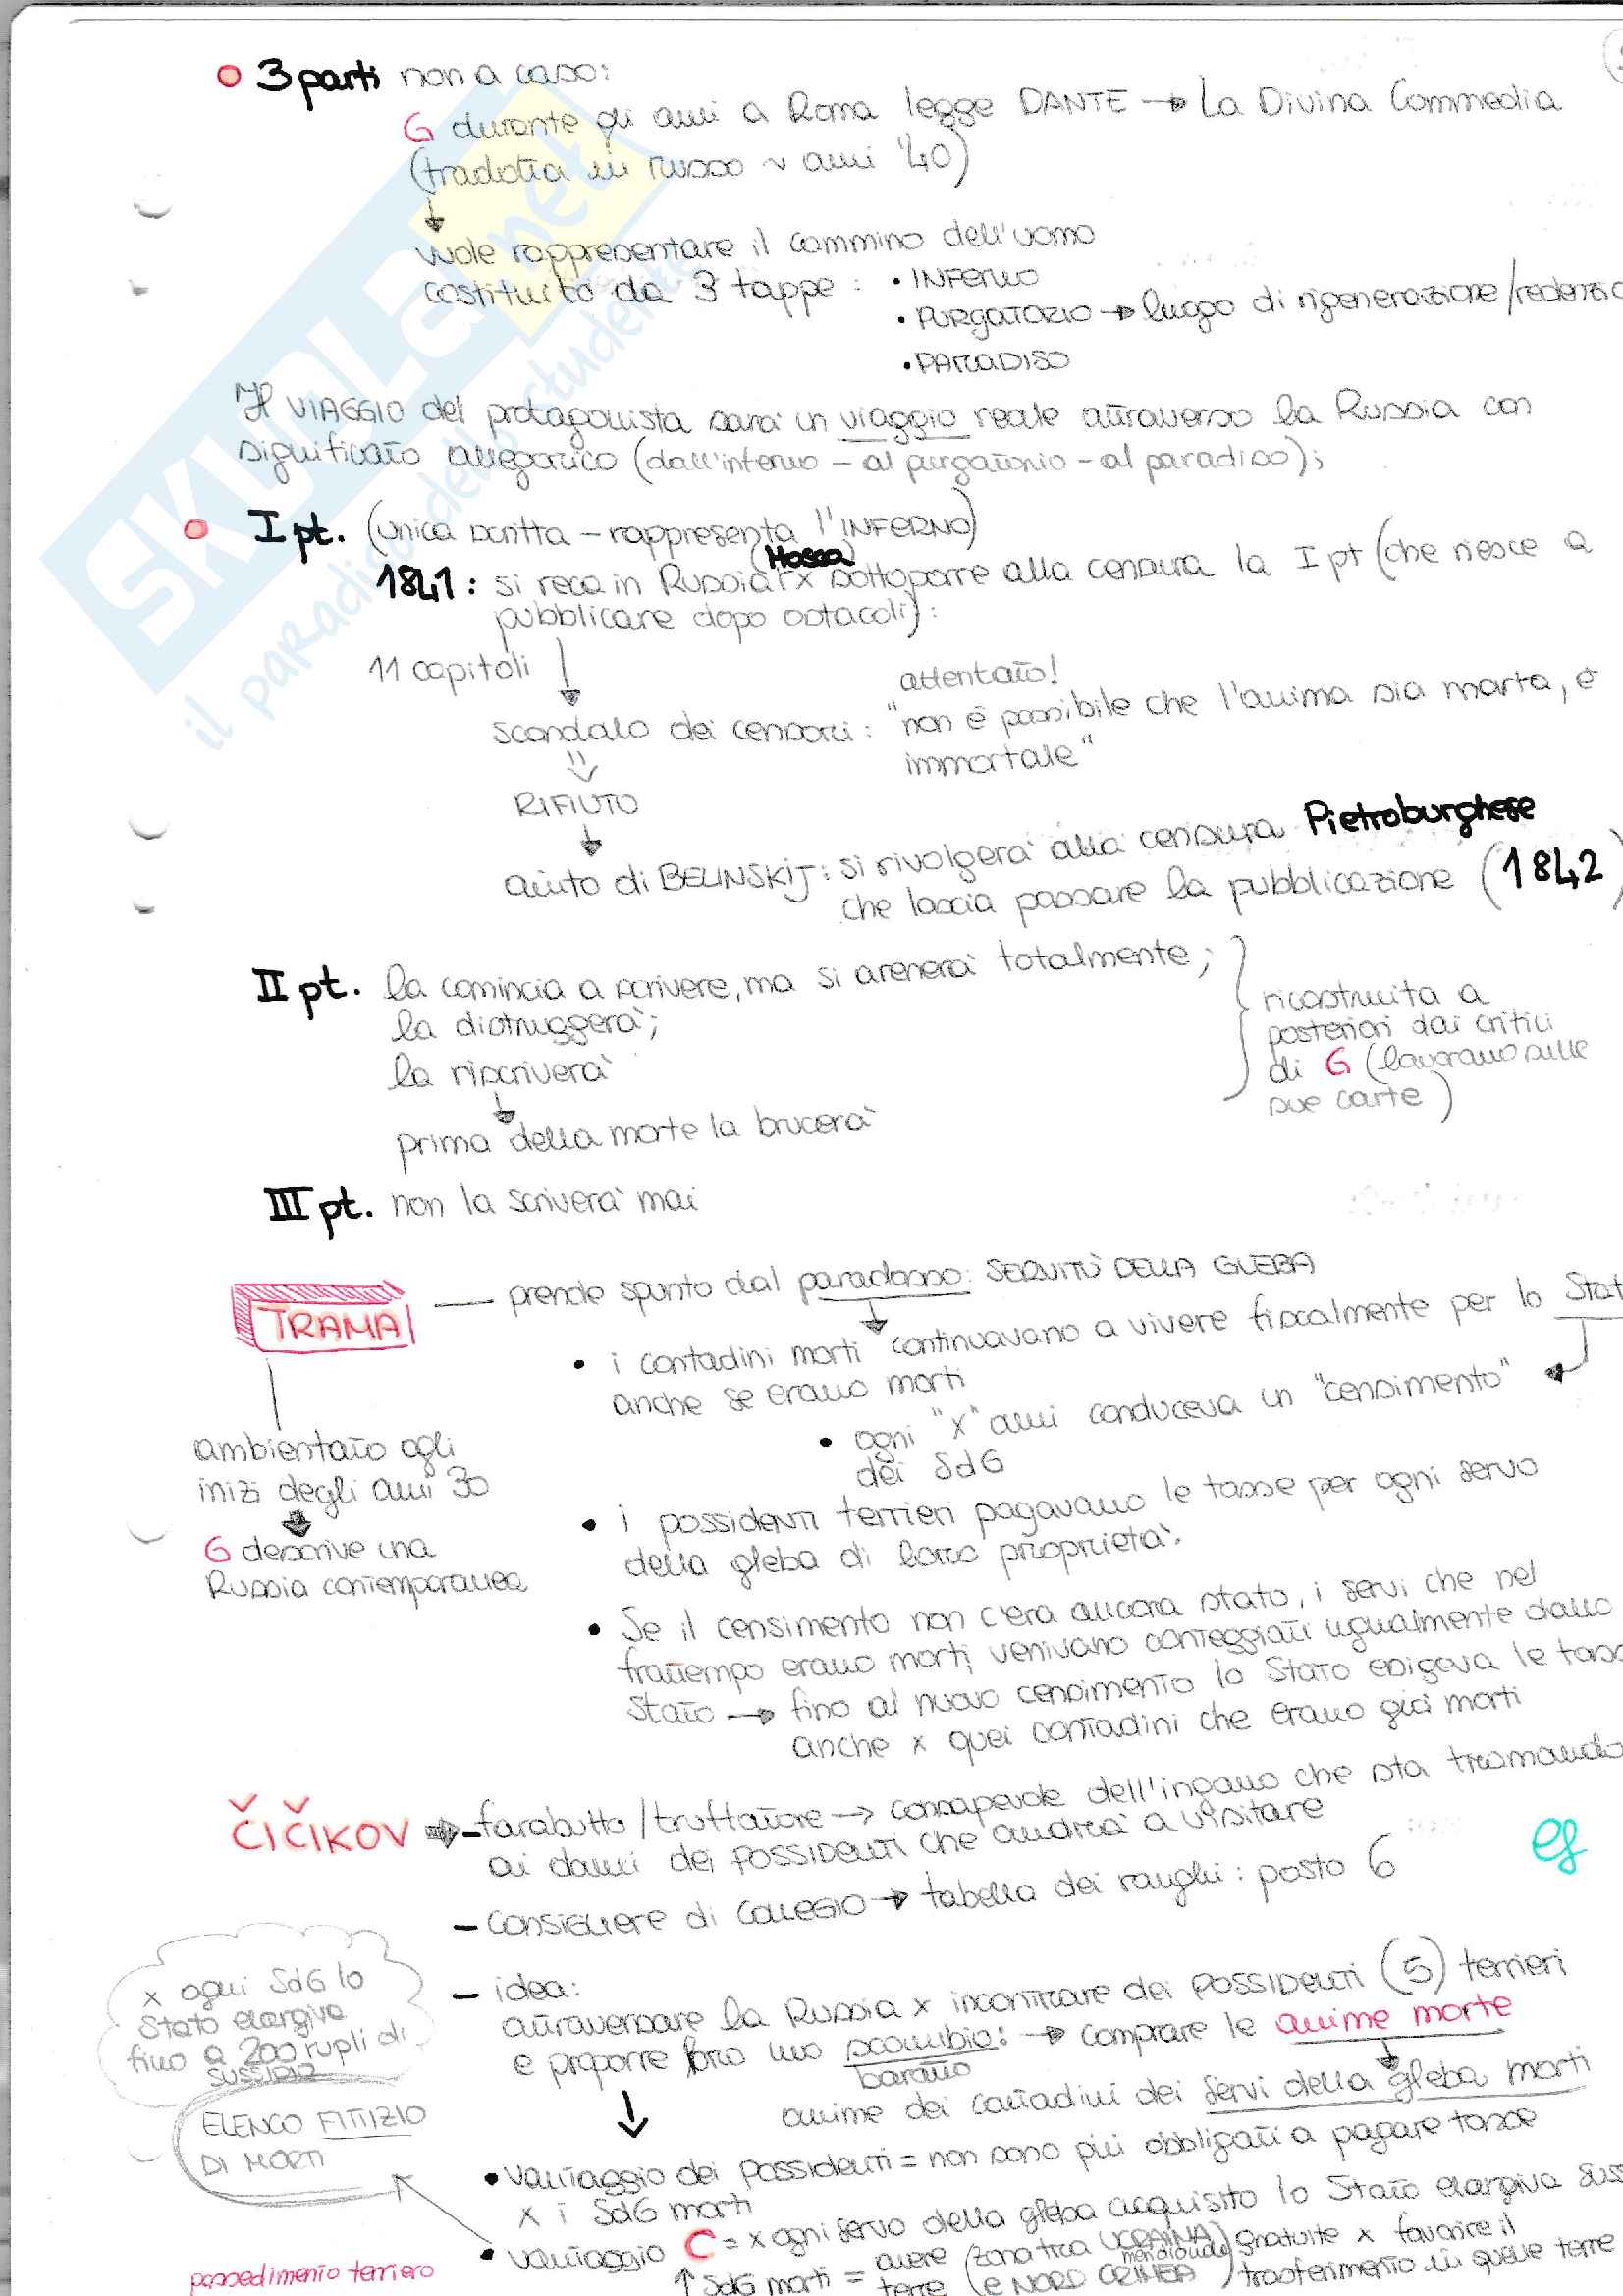 3 parti non a caso:
G durante gli anni a Roma legge DANTE → La Divina Commedia
(tradotta in russo ~ anni '40)
vuole rappresentare il cammino dell'uomo
costituito da 3 tappe : • INFERNO
• PURGATORIO → luogo di rigenerazione/redenzio
• PARADISO
Il VIAGGIO del protagonista sarà un viaggio reale attraverso la Russia con
significato allegorico (dall'inferno - al purgatorio - al paradiso);
I pt. (unica scritta - rappresenta l'INFERNO)
(Mosca)
1841: si reca in Russia x sottoporre alla censura la I pt (che riesce a
pubblicare dopo ostacoli):
11 capitoli
attentato!
scandalo dei censori: "non è possibile che l'anima sia morta, è
immortale"
RIFIUTO
aiuto di BELINSKIJ: si rivolgerà alla censura Pietroburghese
che lascia passare la pubblicazione (1842)
II pt. la comincia a scrivere, ma si arenerà totalmente;
la distruggerà;
la riscriverà
prima della morte la brucerà
ricostruita a
posteriori dai critici
di G (lavorano sulle
sue carte)
III pt. non la scriverà mai
TRAMA — prende spunto dal paradosso: SERVITÙ DELLA GLEBA
• i contadini morti continuavano a vivere fiscalmente per lo Stat
anche se erano morti
• ogni "x" anni conduceva un "censimento"
dei SdG
ambientato agli
inizi degli anni 30
G descrive una
Russia contemporanea
• i possidenti terrieri pagavano le tasse per ogni servo
della gleba di loro proprietà.
• Se il censimento non c'era ancora stato, i servi che nel
frattempo erano morti, venivano conteggiati ugualmente dallo
Stato → fino al nuovo censimento lo Stato esigeva le tass
anche x quei contadini che erano già morti
ČIČIKOV → - farabutto/truffatore → consapevole dell'inganno che sta tramando
ai danni dei POSSIDENTI che andrà a visitare
- CONSIGLIERE di COLLEGIO → tabella dei ranghi: posto 6
- idea:
attraversare la Russia x incontrare dei POSSIDENTI (5) terrieri
e proporre loro uno scambio: → comprare le anime morte
baratto
anime dei contadini dei servi della gleba morti
x ogni SdG lo
Stato elargiva
fino a 200 rupli di
sussidio
ELENCO FITTIZIO
DI MORTI
• vantaggio dei Possidenti = non sono più obbligati a pagare tasse
x i SdG morti
• vantaggio C = x ogni servo della gleba acquisito lo Stato elargiva suss
↑ SdG morti = avere terre (zona tra UCRAINA meridionale e NORD CRIMEA) gratuite x favorire il trasferimento in quelle terre
possedimento terriero
SKUOLA.net
il paradiso dello studente